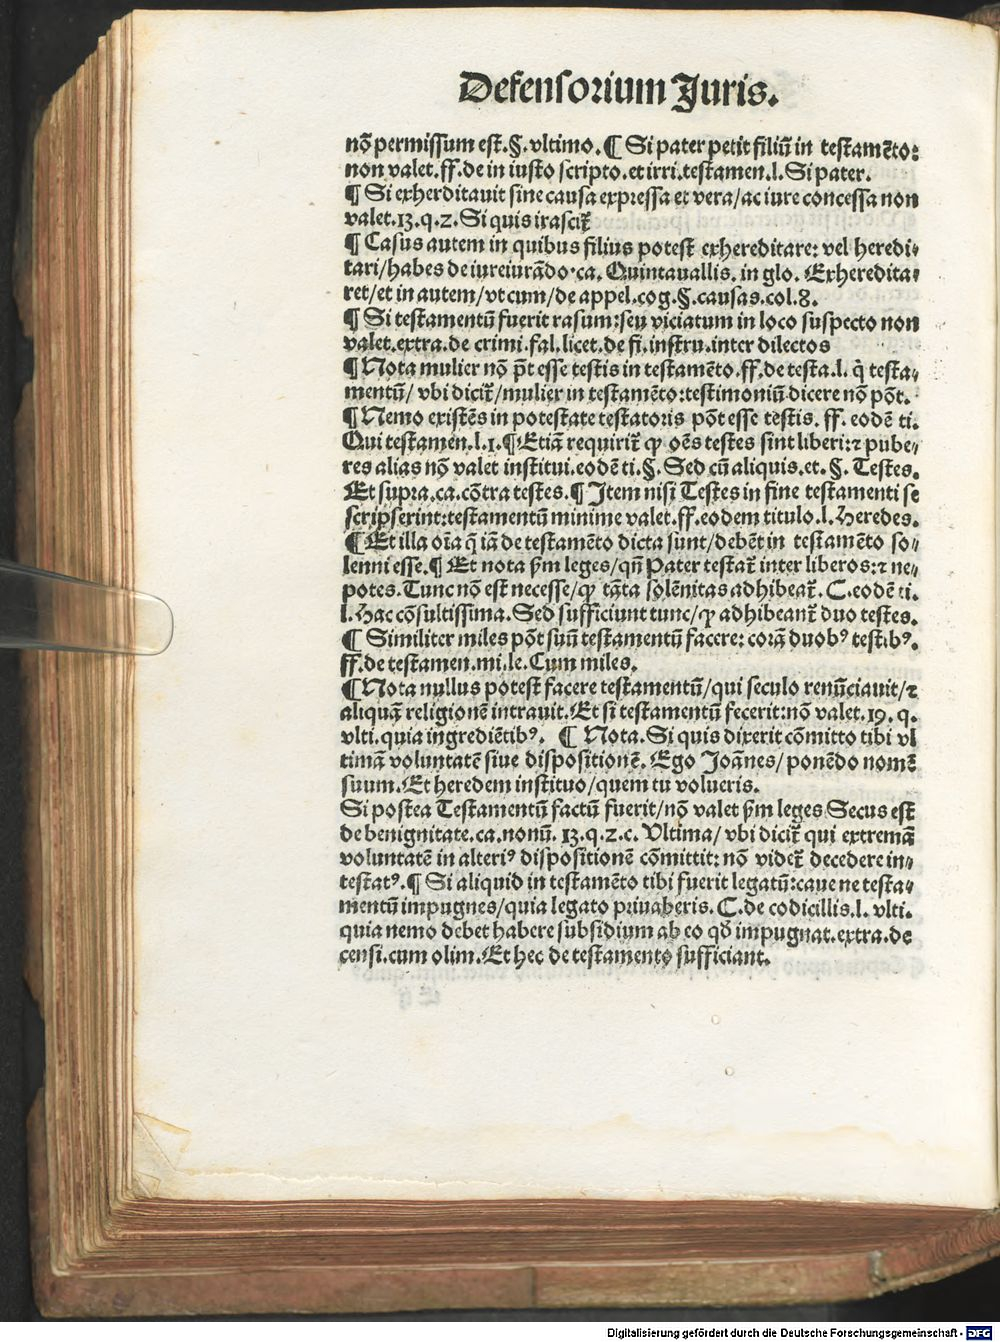 Defensorium Juris.
nō permissum est.§.vltimo.¶ Si pater petit filiū in testamēto:
non valet.ff.de in iusto scripto.et irri.testamen.l.Si pater.
¶ Si exherditauit sine causa expressa et vera/ac iure concessa non
valet.13.q.2.Si quis irascit᷑
¶ Casus autem in quibus filius potest exhereditare: vel heredi⸗
tari/habes de iureiurādo·ca. Quintauallis. in glo. Exheredita⸗
ret/et in autem/vt cum/de appel.cog.§.causas.col.8.
¶ Si testamentū fuerit rasum:seu viciatum in loco suspecto non
valet.extra.de crimi.fal.licet.de fi.instru.inter dilectos
¶ Nota mulier nō p̄t esse testis in testamēto.ff.de testa.l. q̇ testa⸗
mentū/ vbi dicit᷑/mulier in testamēto:testimoniū dicere nō pōt.
¶ Nemo existēs in potestate testatoris pōt esse testis. ff. eodē ti.
Qui testamen.l.1.¶ Etiā requirit᷑ ꝙ oēs testes sint liberi:⁊ pube⸗
res alias nō valet institui.eodē ti.§. Sed cū aliquis.et.§. Testes.
Et supra.ca.cōtra testes.¶ Item nisi Testes in fine testamenti se
scripserint:testamentū minime valet.ff.eodem titulo.l.Heredes.
¶ Et illa oīa q̄ iā de testamēto dicta sunt/debēt in testamēto so⸗
lenni esse.¶ Et nota ẜm leges/qn̄ Pater testat᷑ inter liberos:⁊ ne⸗
potes. Tunc nō est necesse/ꝙ tāta solēnitas adhibeat᷑. C.eodē ti.
l.Hac cōsultissima. Sed sufficiunt tunc/ꝙ adhibeant᷑ duo testes.
¶ Similiter miles pōt suū testamentū facere: corā duobꝰ testibꝰ.
ff.de testamen.mi.le.Cum miles.
¶ Nota nullus potest facere testamentū/qui seculo renūciauit/⁊
aliquā religionē intrauit.Et si testamentū fecerit:nō valet.19. q.
vlti.quia ingrediētibꝰ. ¶ Nota. Si quis dixerit cōmitto tibi vl
timā voluntatē siue dispositionē. Ego Joānes/ ponēdo nomē
suum.Et heredem instituo/quem tu volueris.
Si postea Testamentū factū fuerit/nō valet ẜm leges Secus est
de benignitate.ca.nonū. 13.q.2.c. Vltima/ vbi dicit᷑ qui extremā
voluntatē in alteriꝰ dispositionē cōmittit: nō videt᷑ decedere in⸗
testatꝰ.¶ Si aliquid in testamēto tibi fuerit legatū:caue ne testa⸗
mentū impugnes/quia legato priuaberis. C.de codicillis.l. vlti.
quia nemo debet habere subsidium ab eo qđ impugnat.extra.de
censi.cum olim.Et hec de testamento sufficiant.
Digitalisierung gefördert durch die Deutsche Forschungsgemeinschaft - DFG